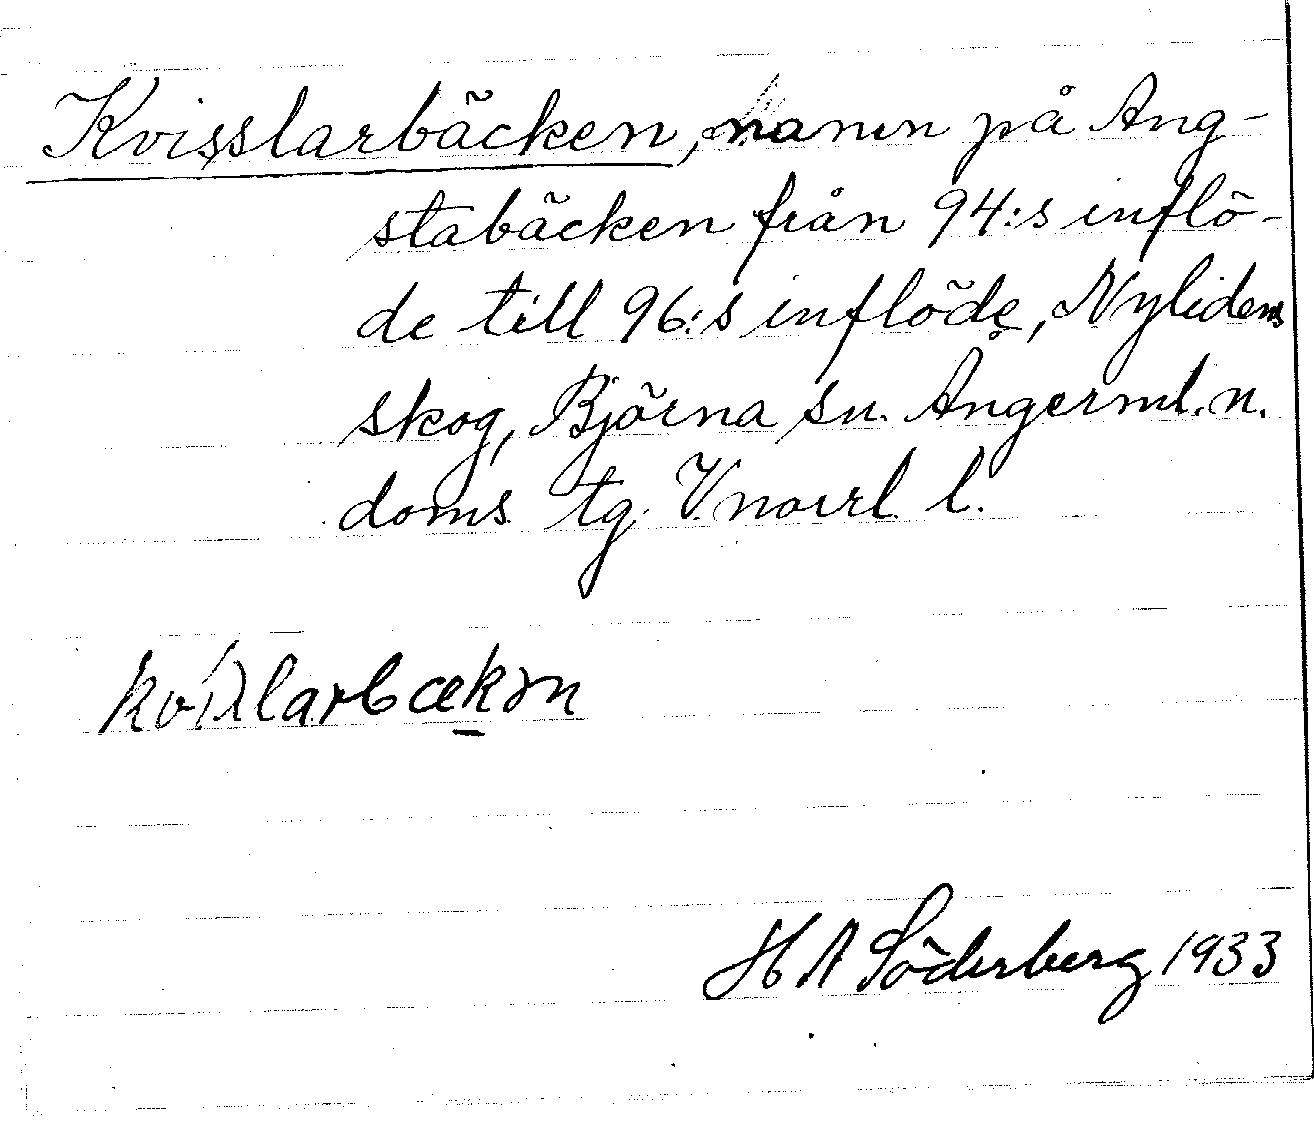 Kvisslarbäcken, namn på Ång-
stabäcken från 94:s inflö-
de till 96:s inflöde, Nylidens
skog, Björna sn. Ångerml. n.
doms. tg. V.norrl. l.
H A Söderberg 1933